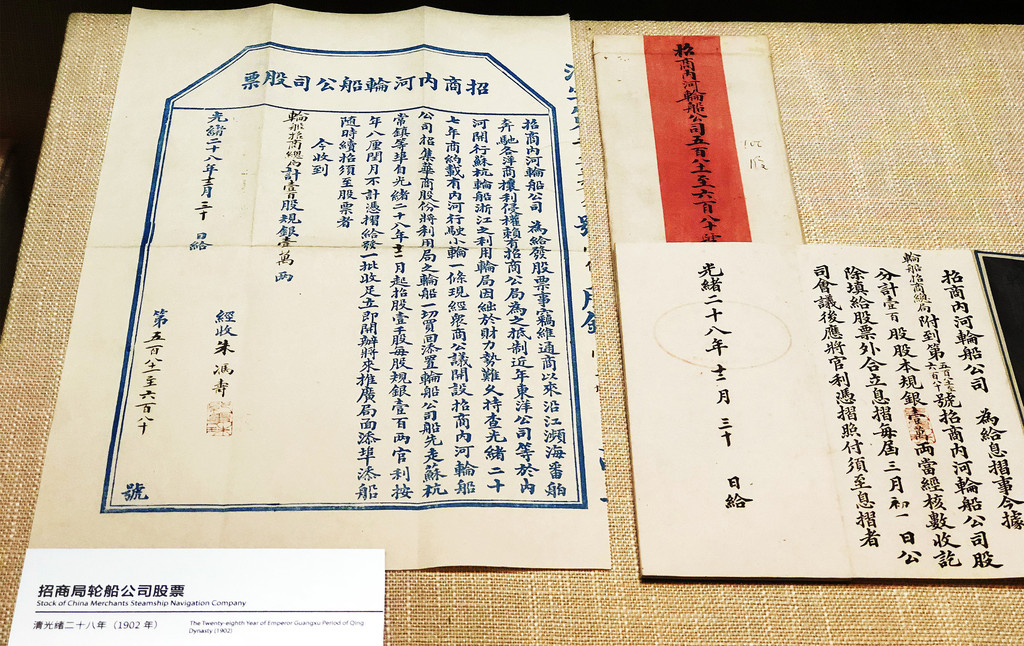 招商內河輪船公司股票
招商內河輪船公司 為給發股票事竊維通商以來沿江瀕海番舶
奔馳各洋商攘利侵權賴有招商公局為之抵制近年東洋公司等於內
河開行蘇杭輪船浙江之利用輪局因絀於財力勢難久持查光緒二十
七年商約載有內河行駛小輪一條現經眾商公議開設招商內河輪船
公司招集華商股份將利用局之輪船一切買回添置輪船公司船先走蘇杭
常鎮等埠自光緒二十八年十二月起招股壹千股每股規銀壹百兩官利按
年八厘閏月不計憑摺給發一批收足立即開辦將來推廣局面添埠添船
隨時續招須至股票者
今收到
輪船招商總局計壹百股規銀壹萬兩
光緒二十八年十二月三十日給
經收朱馮壽
第五百八十一至六百八十
號
招商內河輪船公司五百八十一至六百八十號
招商內河輪船公司 為給息摺事今據
輪船招商總局附到第五百八十一至六百八十號招商內河輪船公司股
分計壹百股股本規銀壹萬兩當經核數收訖
除填給股票外合立息摺每屆三月初一日公
司會議後應將官利憑摺照付須至息摺者
光緒二十八年十二月三十日給
招商局轮船公司股票
Stock of China Merchants Steamship Navigation Company
清光绪二十八年（1902 年）
The Twenty-eighth Year of Emperor Guangxu Period of Qing
Dynasty (1902)